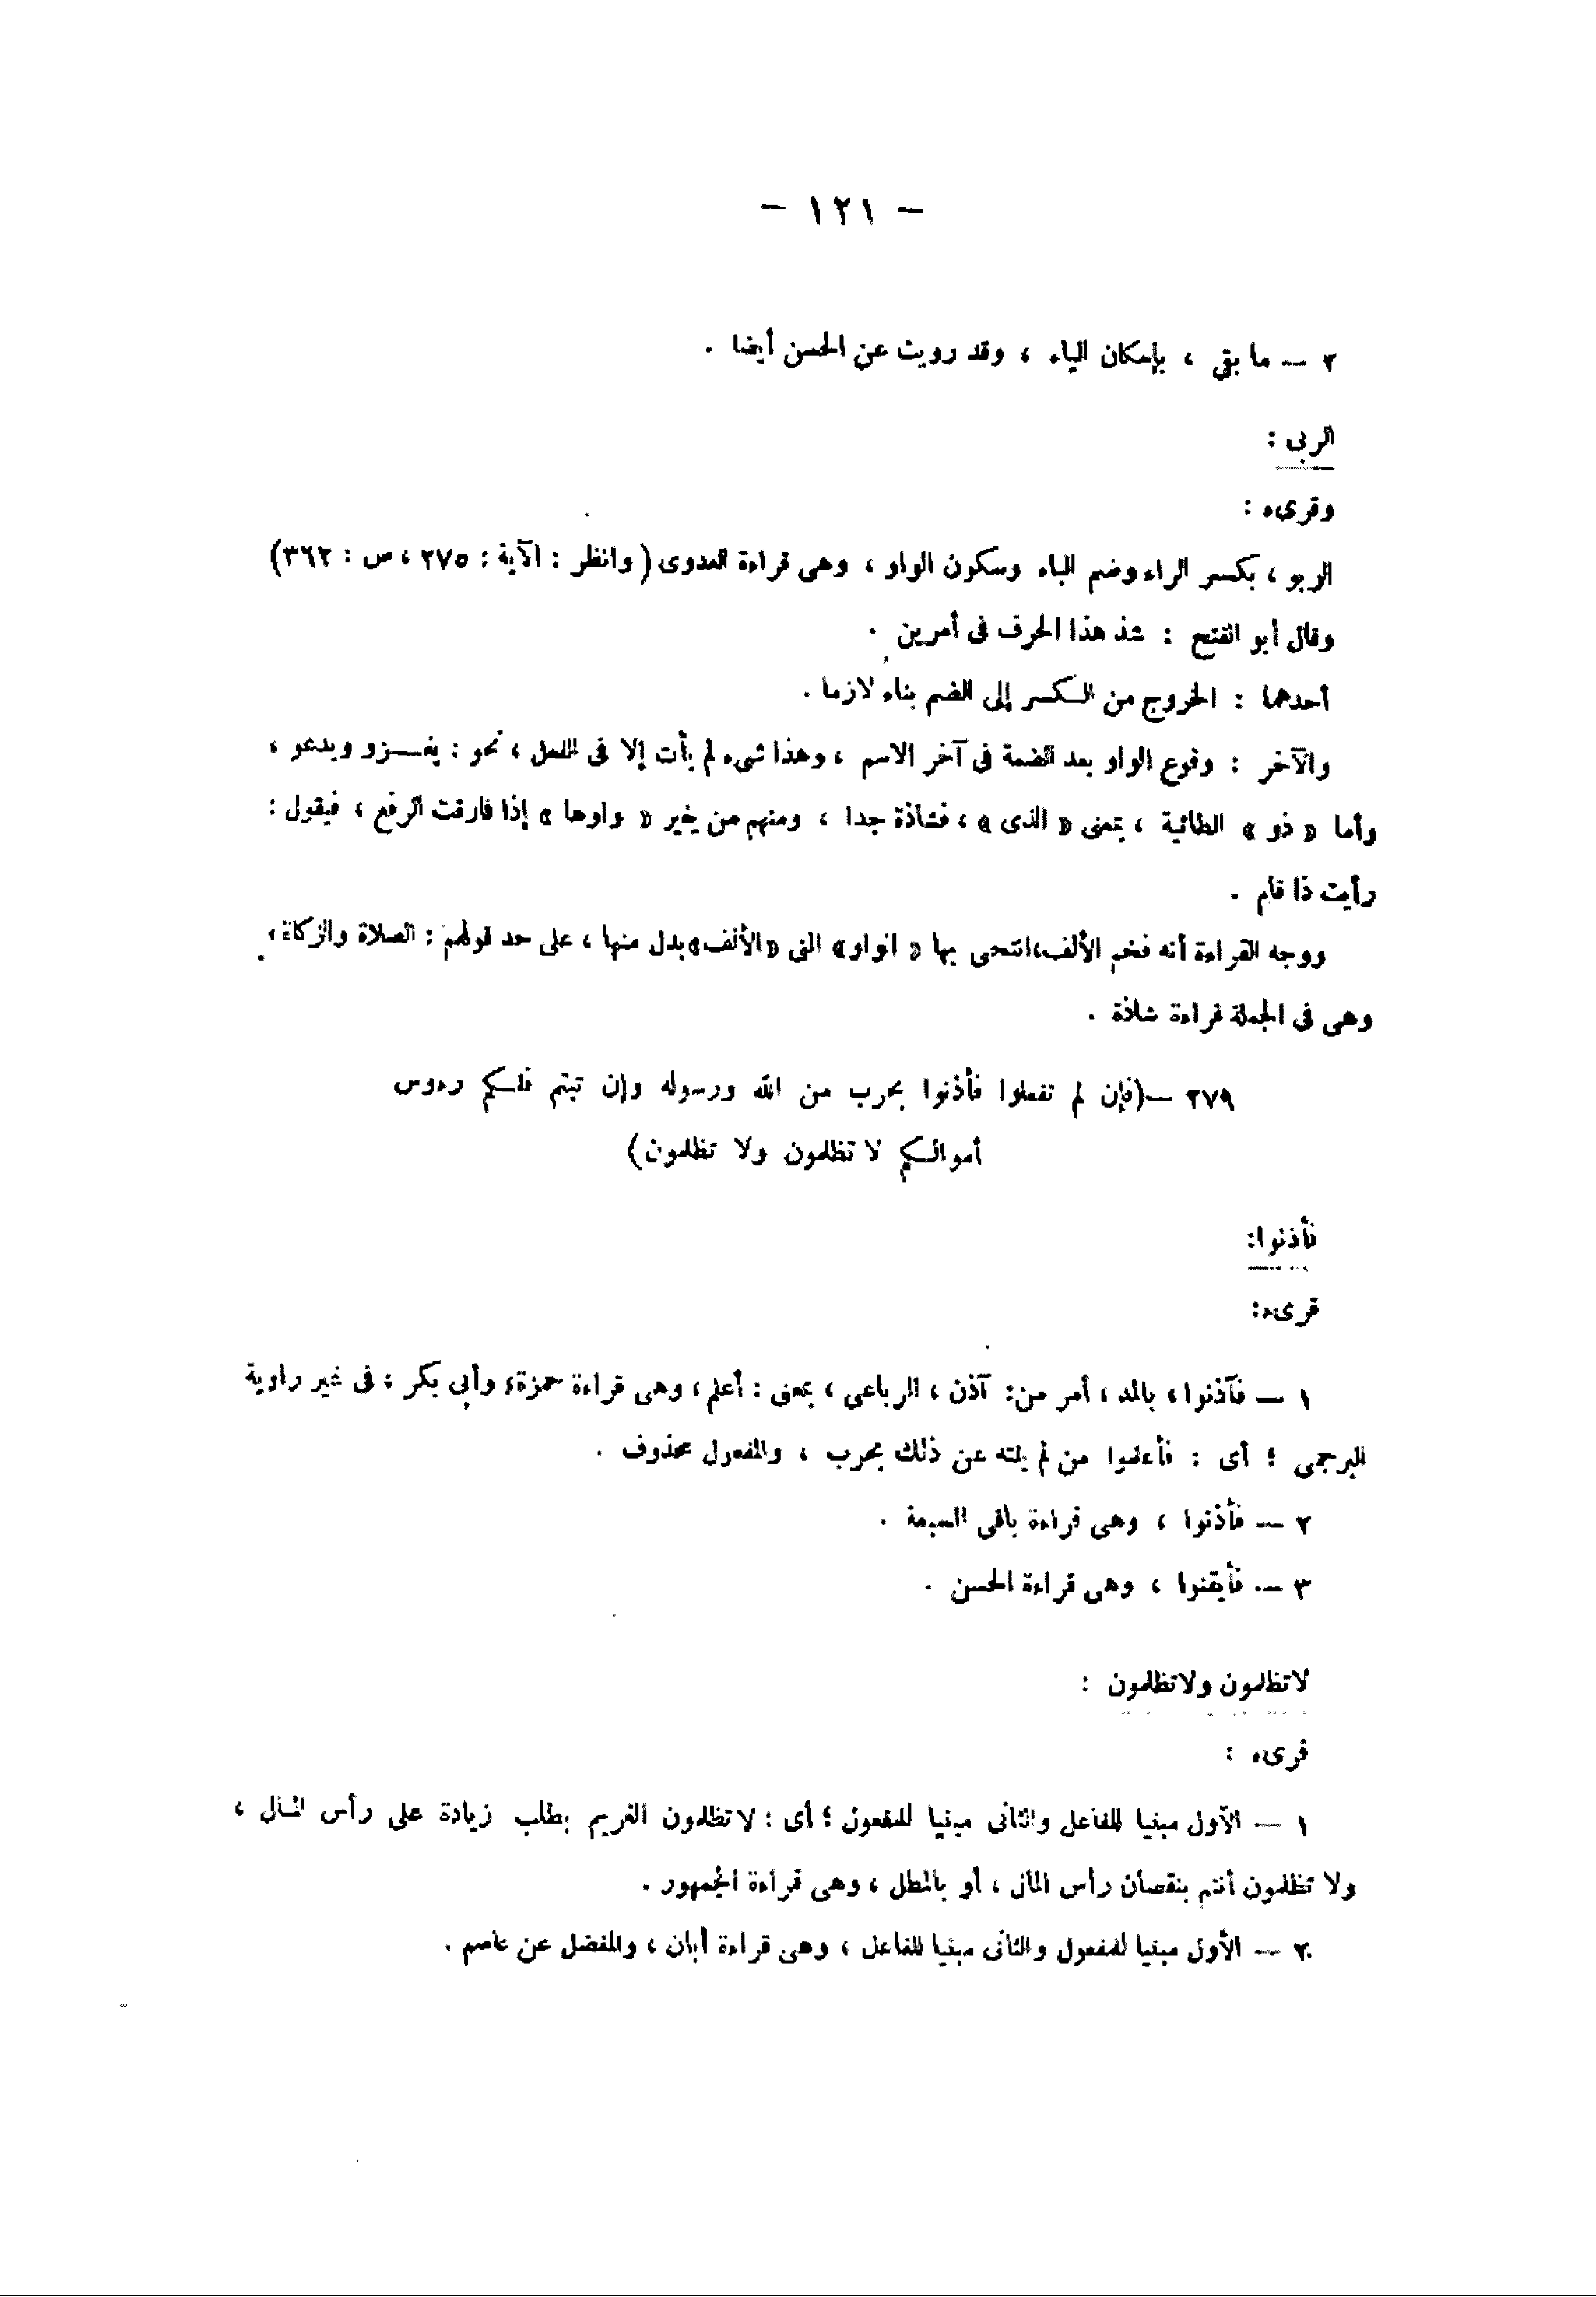 — ١٢١ —
٢ — ما بقى ، بإسكان الياء ، وقد رويت عن الحسن أيضا .
الربى :
وقرىء :
الربو ، بكسر الراء وضم الباء وسكون الواو ، وهى قراءة العدوى ( وانظر : الآية : ٢٧٥ ، ص : ٣٦٢)
وقال أبو الفتح : شذ هذا الحرف فى أمرين .
أحدهما : الخروج من الكسر إلى الضم بناء لازما .
والآخر : وقوع الواو بعد الضمة فى آخر الاسم ، وهذا شىء لم يأت إلا فى الفعل ، نحو : يغزو ويدعو ،
وأما « ذو » الطائية ، بمعنى « الذى » ، فشاذة جدا ، ومنهم من يغير « واوها » إذا فارقت الرفع ، فيقول :
رأيت ذا قام .
ووجه القراءة أنه فخم الألف،انتحى بها « الواو» التى «الألف»بدل منها ، على حد قولهم : الصلاة والزكاة ،
وهى فى الجملة قراءة شاذة .
٢٧٩ —(فإن لم تفعلوا فأذنوا بحرب من الله ورسوله وإن تبتم فلكم رءوس
أموالكم لا تظلمون ولا تظلمون)
فأذنوا:
قرىء:
١ — فآذنوا، بالمد ، أمر من: آذن ، الرباعى ، بمعنى : أعلم، وهى قراءة حمزة، وأبى بكر ، فى غير راوية
البرجمى ؛ أى : فأعلموا من لم ينته عن ذلك بحرب ، والمفعول محذوف .
٢ — فأذنوا ، وهى قراءة باقى السبعة .
٣ — فأيقنوا ، وهى قراءة الحسن .
لاتظلمون ولاتظلمون :
قرىء :
١ — الأول مبنيا للفاعل والثانى مبنيا للمفعول ؛ أى : لا تظلمون الغريم بطلب زيادة على رأس المال ،
ولا تظلمون أنتم بنقصان رأس المال ، أو بالمطل ، وهى قراءة الجمهور .
٢ — الأول مبنيا للمفعول والثانى مبنيا للفاعل ، وهى قراءة أبان ، والمفضل عن عاصم .